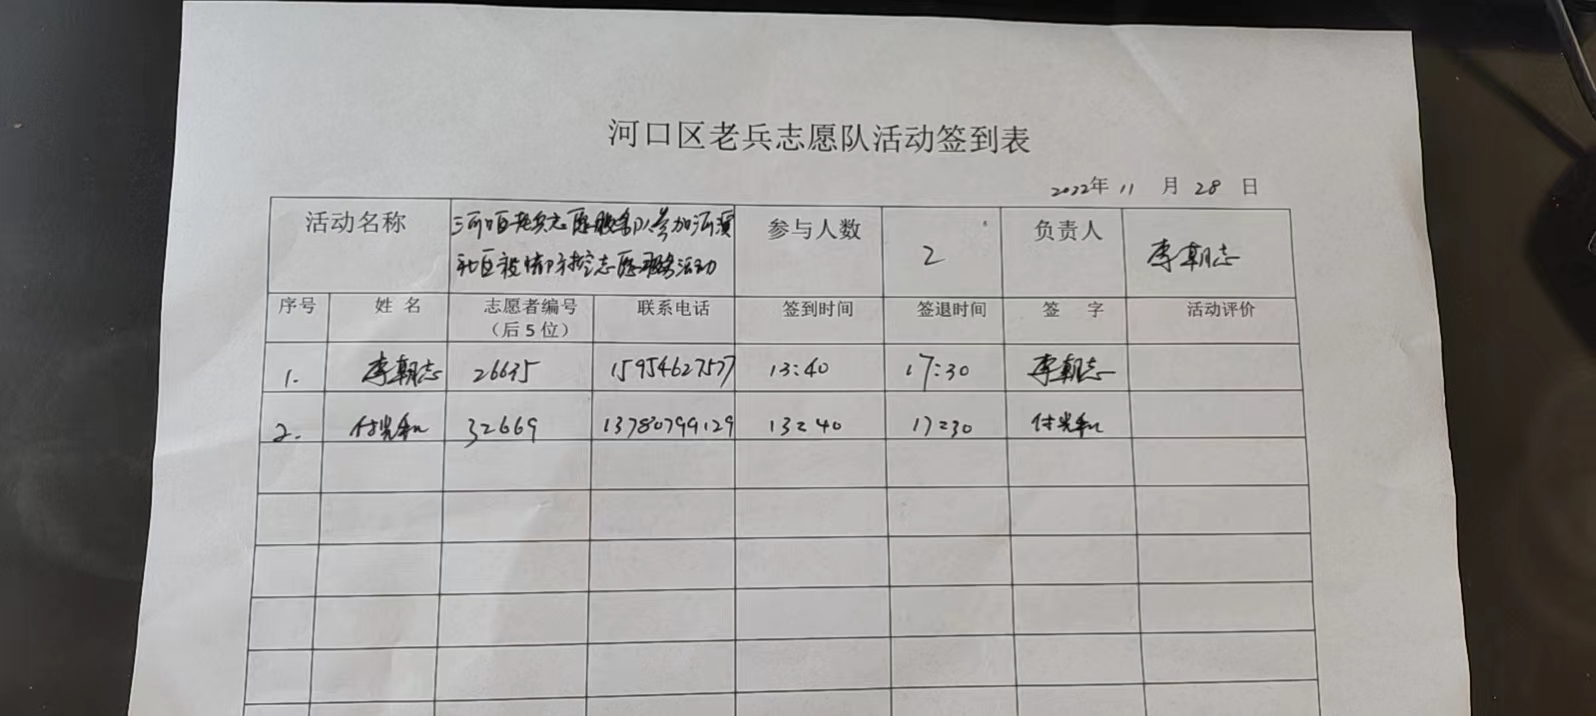 河口区老兵志愿队活动签到表
2022年 11 月 28 日
活动名称 河口区老兵志愿服务队参加河滨 参与人数 2 负责人 李朝志
社区疫情防控志愿服务活动
序号 姓名 志愿者编号 联系电话 签到时间 签退时间 签 字 活动评价
（后5位）
1. 李朝志 26635 15954627577 13:40 17:30 李朝志
2. 付光和 32669 13780799129 13:40 17:30 付光和